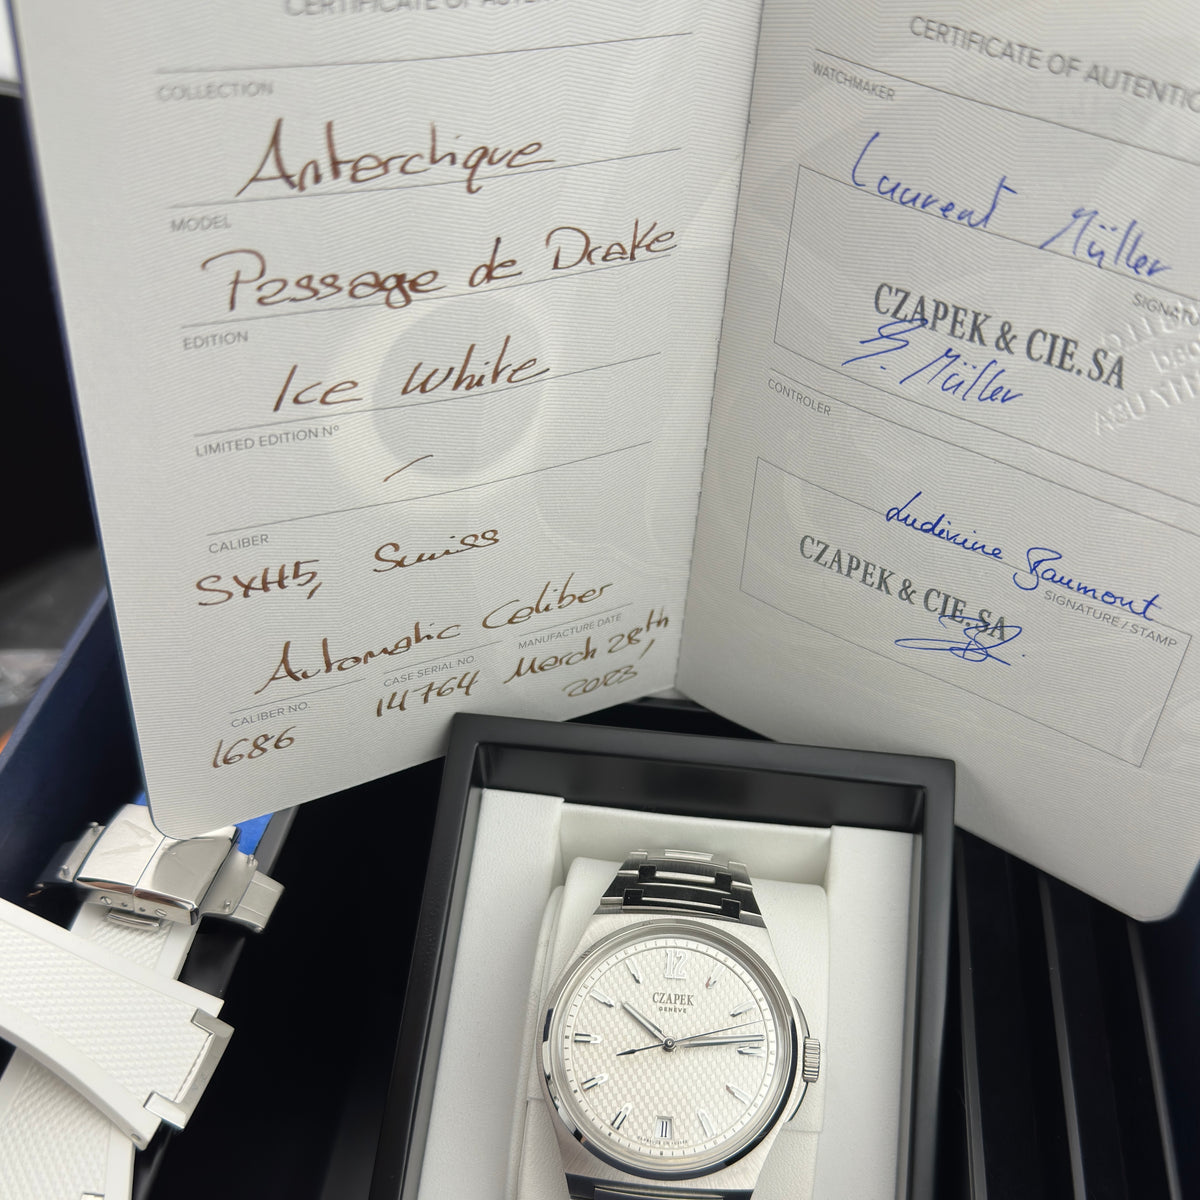 CERTIFICATE OF AUTEN
COLLECTION
Anterctique
MODEL
Passage de Drake
EDITION
Ice White
LIMITED EDITION N°
–
CALIBER
SXH5, Swiss
Automatic Caliber
CALIBER NO.
1686
CASE SERIAL NO.
14764
MANUFACTURE DATE
March 28th,
2023
CERTIFICATE OF AUTENTIC
WATCHMAKER
Laurent Müller
SIGNATU
CZAPEK & CIE. SA
Müller
CONTROLER
Ludivine Baumont
SIGNATURE / STAMP
CZAPEK & CIE. SA
12
CZAPEK
GENÈVE